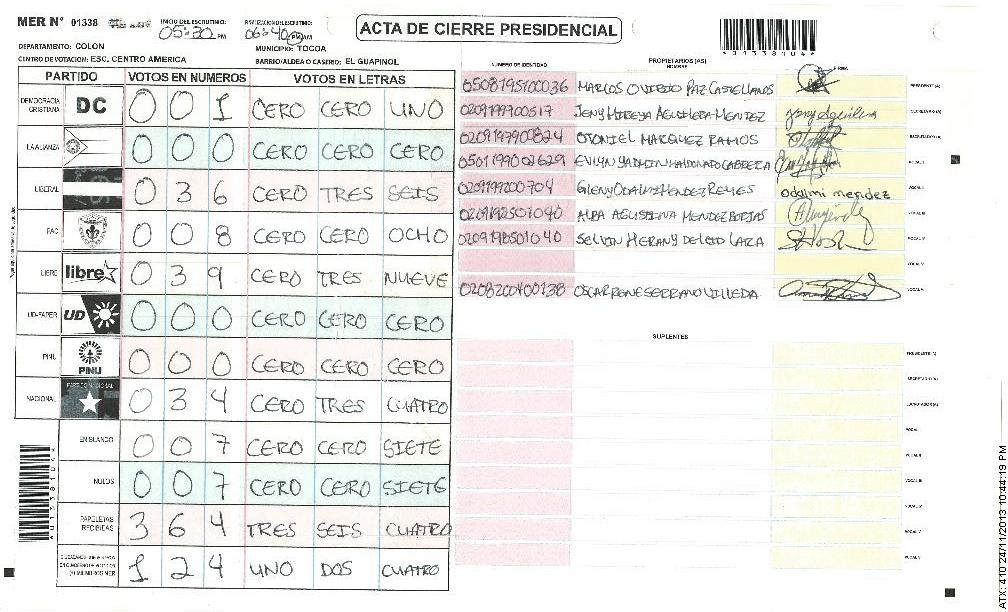 MER N° 01338
INICIO DEL ESCRUTINIO: 05:30 PM
FINALIZACION DEL ESCRUTINIO: 06:40 PM
ACTA DE CIERRE PRESIDENCIAL
DEPARTAMENTO: COLON
MUNICIPIO: TOCOA
CENTRO DE VOTACION: ESC. CENTRO AMERICA
BARRIO/ALDEA O CASERIO: EL GUAPINOL
PARTIDO VOTOS EN NUMEROS VOTOS EN LETRAS
DEMOCRACIA CRISTIANA DC 0 0 1 CERO CERO UNO
LA ALIANZA 0 0 0 CERO CERO CERO
LIBERAL 0 3 6 CERO TRES SEIS
PAC 0 0 8 CERO CERO OCHO
LIBRE libre 0 3 9 CERO TRES NUEVE
UD-FAPER UD 0 0 0 CERO CERO CERO
PINU PINU 0 0 0 CERO CERO CERO
NACIONAL PARTIDO NACIONAL 0 3 4 CERO TRES CUATRO
EN BLANCO 0 0 7 CERO CERO SIETE
NULOS 0 0 7 CERO CERO SIETE
PAPELETAS RECIBIDAS 3 6 4 TRES SEIS CUATRO
1 2 4 UNO DOS CUATRO
NUMERO DE IDENTIDAD PROPIETARIOS (AS) NOMBRE FIRMA
0508195100036 MARCOS OVIEDO PAZ CASTELLANOS PRESIDENTE (A)
0209199700517 JENY MIREYA AGUILERA MENDEZ SECRETARIO (A)
0209197900824 OTONIEL MARQUEZ RAMOS ESCRUTADOR (A)
0501199002629 EVLYN YADMIN MALDONADO CABRERA VOCAL I
0209199200704 GLENY ODALMI MENDEZ REYES odalmi mendez VOCAL II
0209192501040 ALBA AGUSTINA MENDEZ BORJAS VOCAL III
0209198501040 SELVIN HERANY DE LEIO LARA VOCAL IV
VOCAL V
0208200400138 OSCAR RENE SERRANO VILLEDA VOCAL VI
SUPLENTES
PRESIDENTE (A)
SECRETARIO (A)
ESCRUTADOR (A)
VOCAL I
VOCAL II
VOCAL III
VOCAL IV
VOCAL V
VOCAL VI
ATX: 410 24/11/2013 10:44:19 PM